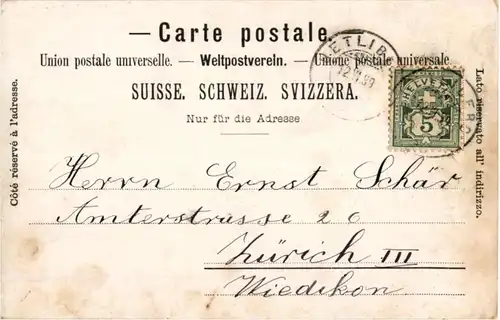 — Carte postale. —
Union postale universelle. — Weltpostverein. — Unione postale universale.
SUISSE. SCHWEIZ. SVIZZERA.
Nur für die Adresse
Côté réservé à l'adresse.
Lato riservato all' indirizzo.
5
Herrn Ernst Schär
Amterstrasse 20
Zürich III
Wiedikon